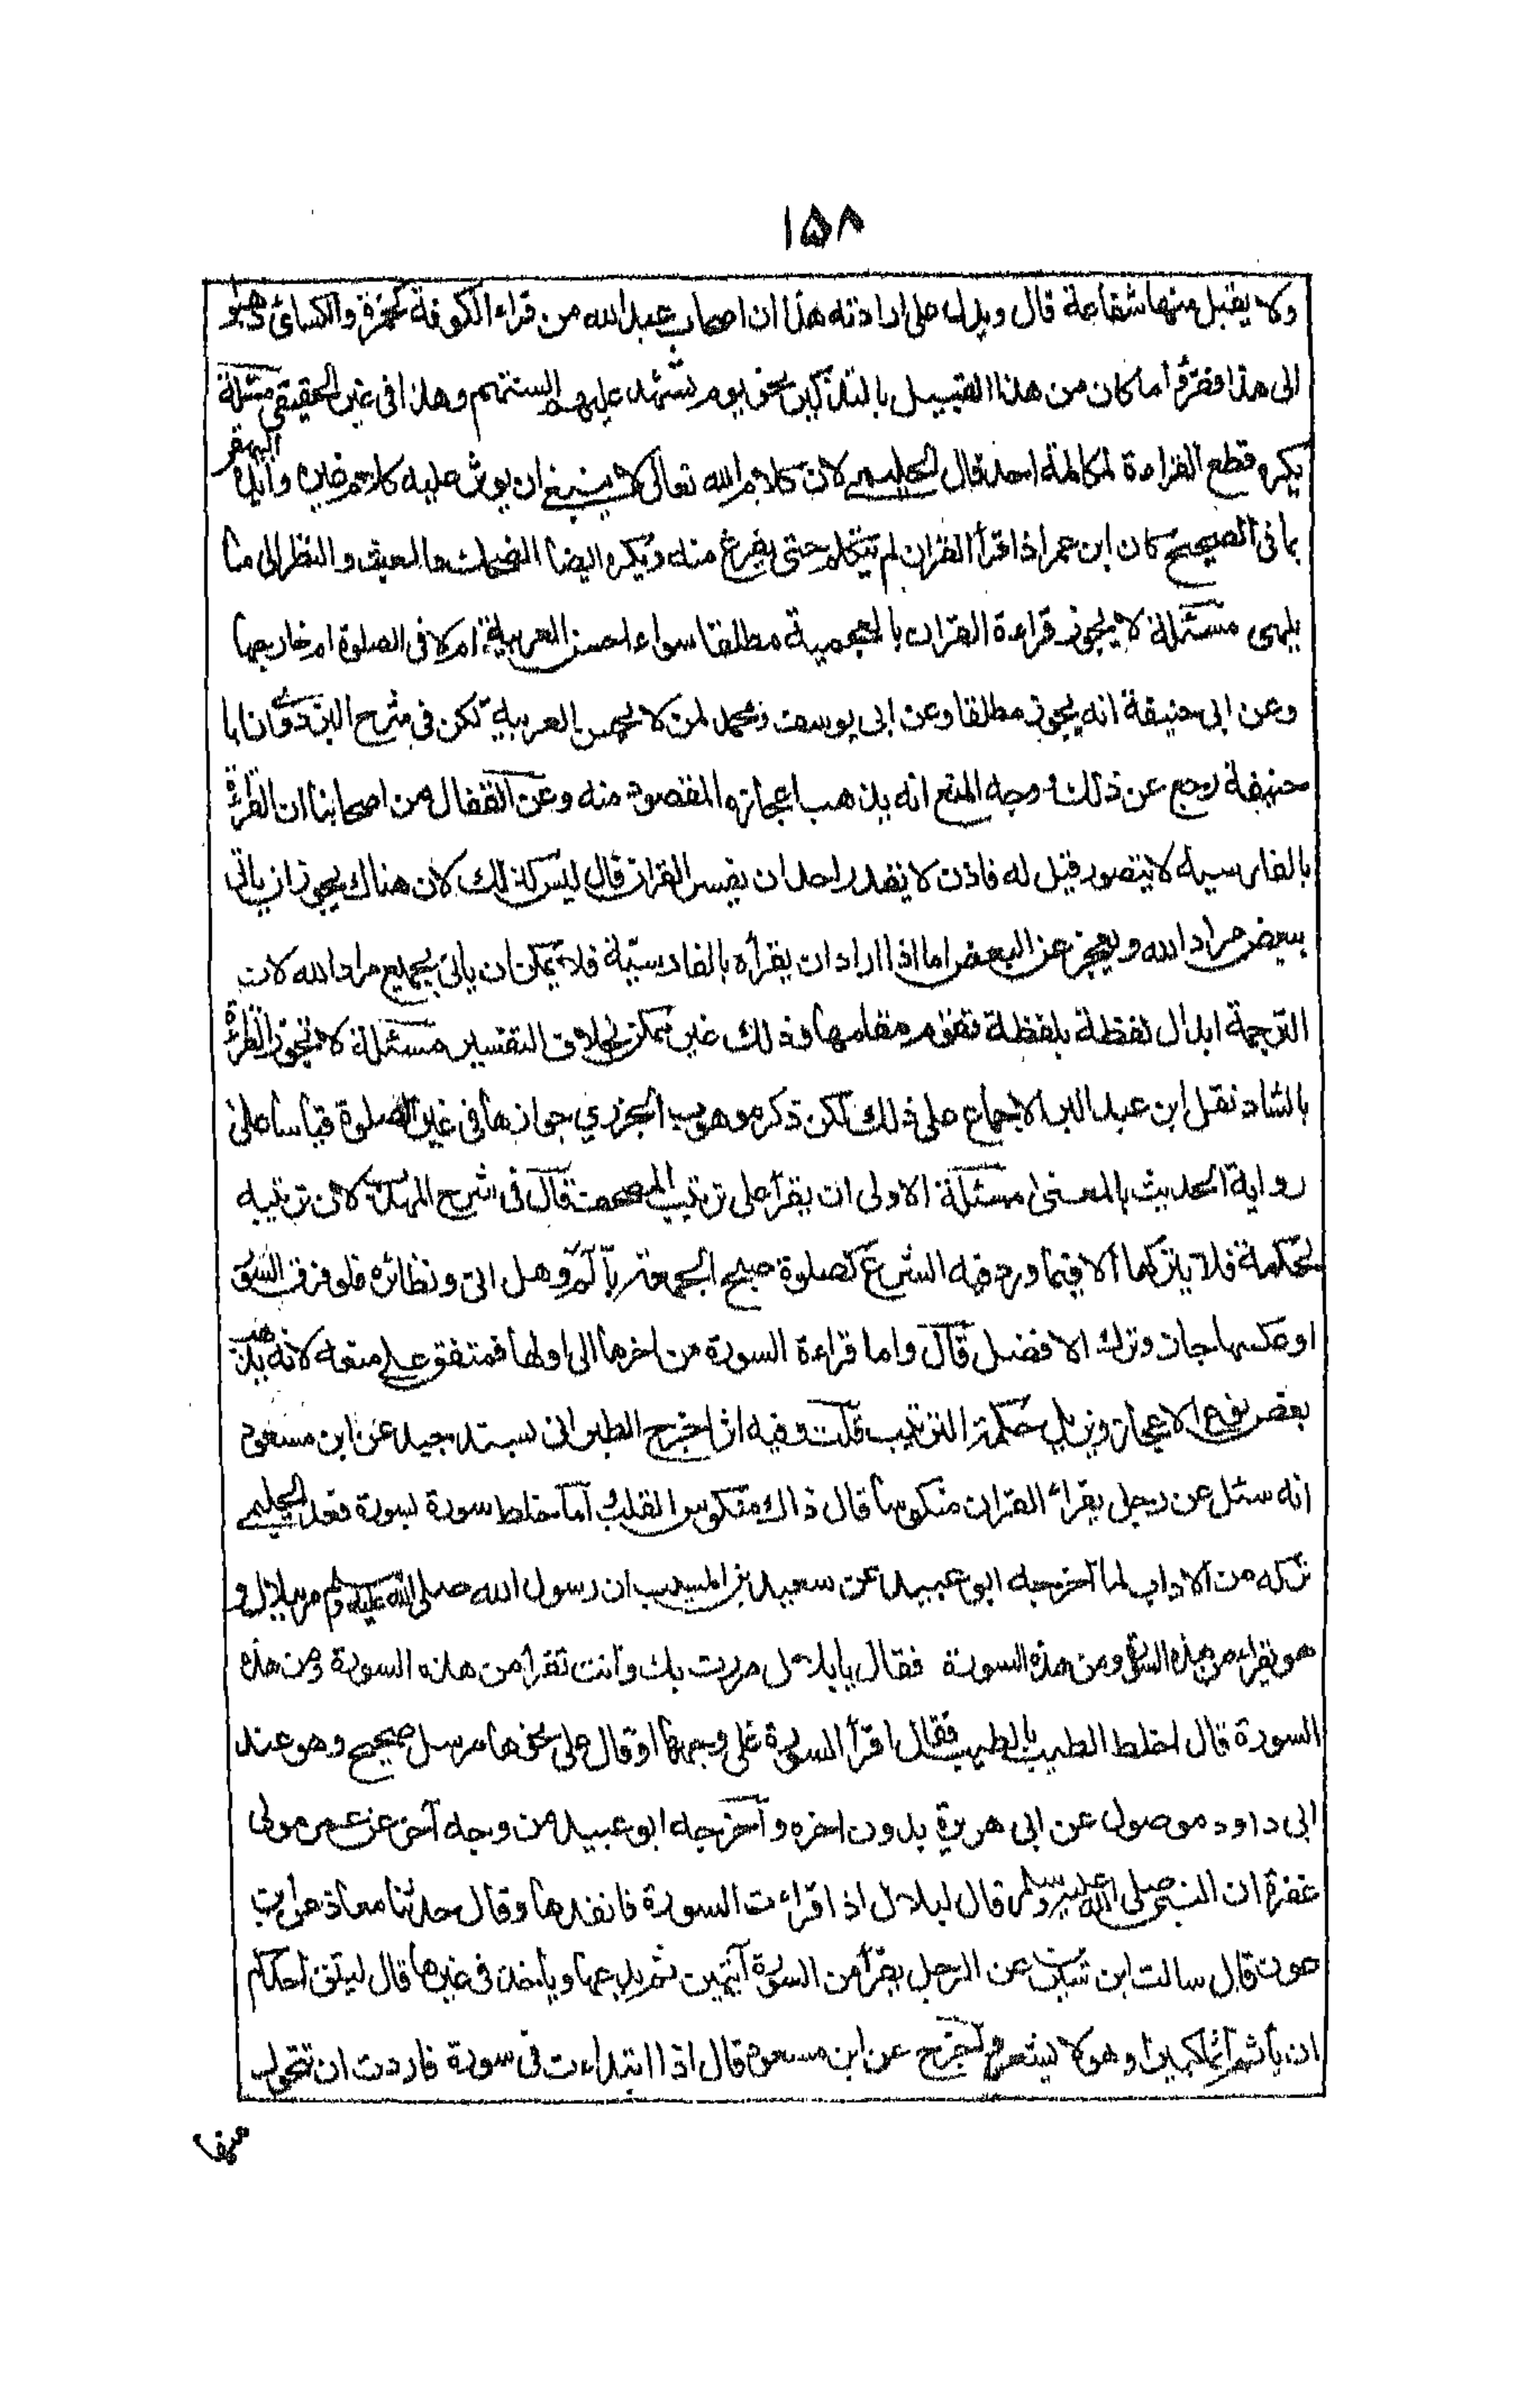 ١٥٨
ولا يقبل منها شفاعة قال ويدلك على ارادته هذا ان اصحاب عبد الله من قراء الكوفة كحمزة والكسائى ذهبوا
الى هذا فقرؤا ما كان من هذا القبيل بالتذكير نحو يوم يشهد عليهم السنتهم وهذا فى غير الحقيقى مسئلة
يكره قطع القراءة لمكالمة احد قال الحليمى لان كلام الله تعالى لا ينبغى ان يوثر عليه كلام غيره وايده البيهقى
بما فى الصحيح كان ابن عمر اذا قرأ القران لم يتكلم حتى يفرغ منه ويكره ايضا الضحك والعبث والنظر الى ما
يلهى مسئلة لا يجوز قراءة القران بالعجمية مطلقا سواء احسن العربية ام لا فى الصلوة ام خارجها
وعن ابى حنيفة انه يجوز مطلقا وعن ابى يوسف ومحمد لمن لا يحسن العربية لكن فى شرح البزدوى ان ابا
حنيفة رجع عن ذلك ووجه المنع انه يذهب اعجازه المقصود منه وعن القفال من اصحابنا ان القراءة
بالفارسية لا يتصور قيل له فاذن لا يقدر احد ان يفسر القران قال ليس كذلك لان هناك يجوز ان ياتى
ببعض مراد الله ويعجز عن البعض اما اذا اراد ان يقرأه بالفارسيّة فلا يمكن ان ياتى بجميع مراد الله لان
الترجمة ابدال لفظة بلفظة تقوم مقامها وذلك غير ممكن بخلاف التفسير مسئلة لا تجوز القراءة
بالشاذ نقل ابن عبد البر الاجماع على ذلك لكن ذكر موهوب الجزري جوازها فى غير الصلوة قياسا على
رواية الحديث بالمعنى مسئلة الاولى ان يقرأ على ترتيب المصحف قال فى شرح المهذب لان ترتيبه
لحكمة فلا يتركها الا فيما ورد فيه الشرع كصلوة صبح الجمعة بآلم وهل اتى ونظائره فلو فرق السور
او عكسها جاز وترك الافضل قال واما قراءة السورة من اخرها الى اولها فمتفق على منعه لانه يذهب
بعض نوع الاعجاز ويزيل حكمة الترتيب قلت وفيه اثر اخرج الطبرانى بسند جيد عن ابن مسعود
انه سئل عن رجل يقراء القران منكوسا قال ذاك منكوس القلب اما خلط سورة بسورة فعد الحليمى
تركه من الاداب لما اخرجه ابو عبيد عن سعيد بن المسيب ان رسول الله صلى الله عليه وسلم مر ببلال و
هو يقراء من هذه السورة ومن هذه السورة فقال يا بلال مررت بك وانت تقرأ من هذه السورة ومن هذه
السورة قال اخلط الطيب بالطيب فقال اقرأ السورة على وجهها او قال على نحوها مرسل صحيح وهو عند
ابى داود موصول عن ابى هريرة بدون اخره واخرجه ابو عبيد من وجه آخر عن عمر مولى
غفرة ان النبى صلى الله عليه وسلم قال لبلال اذا قراءت السورة فانفدها وقال حدثنا معاذ عن ابن
عون قال سالت ابن سيرين عن الرجل يقرأ من السورة آيتين ثم يدعها وياخذ فى غيرها قال ليتق احدكم
ان ياثم اثما كبيرا وهو لا يشعر واخرج عن ابن مسعود قال اذا ابتداءت فى سورة فاردت ان تتحول
منها